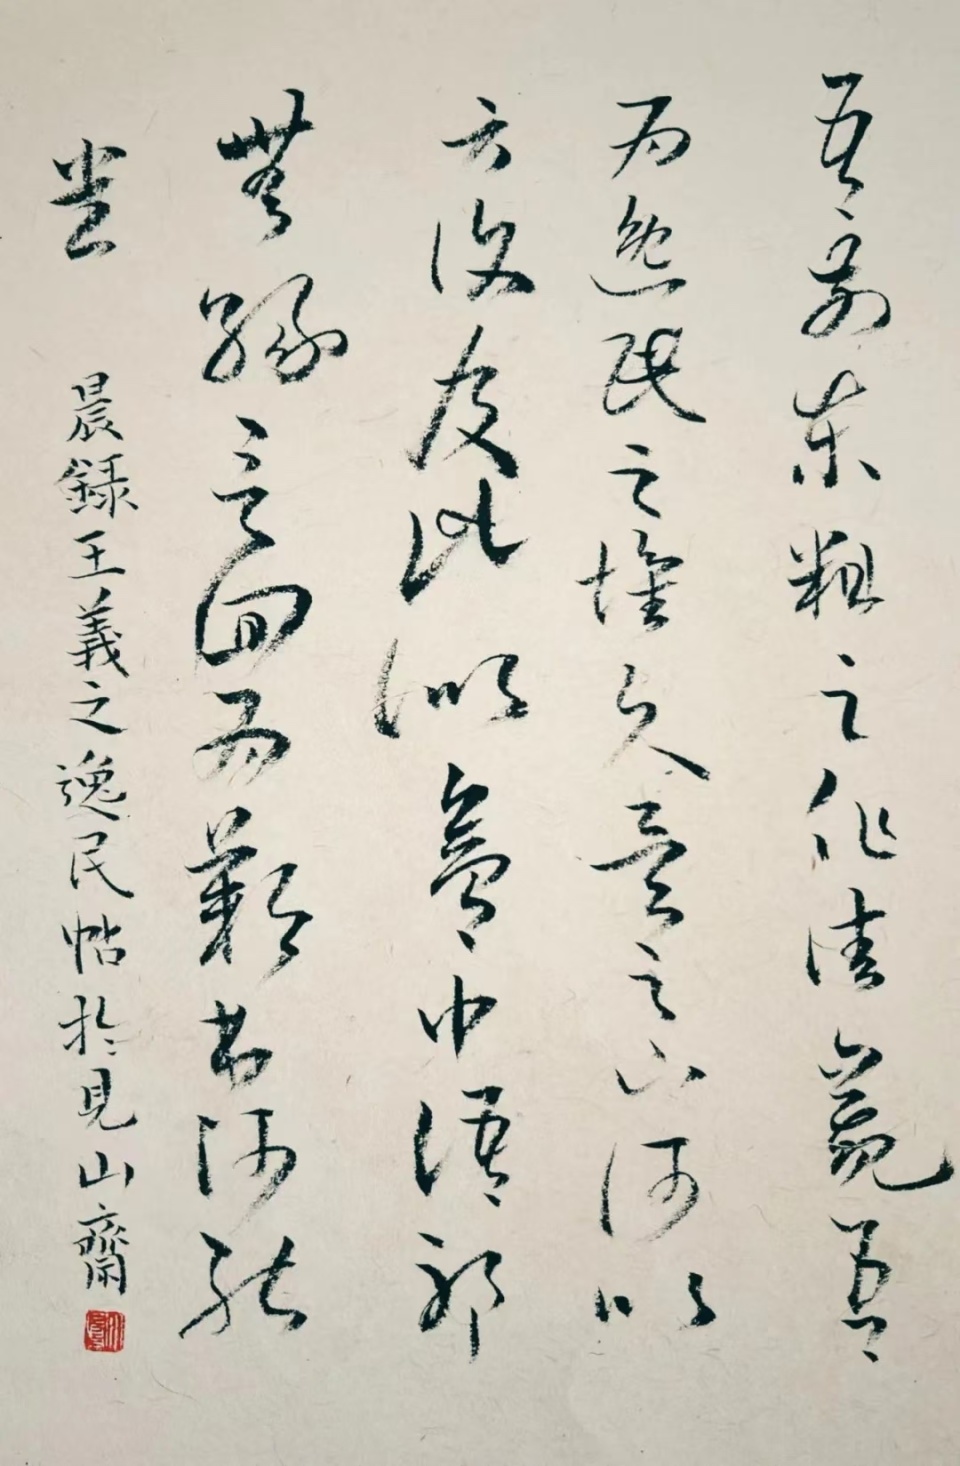 吾前東粗足作佳觀吾
為逸民之懷久矣足下何以
方復及此似夢中語耶
無緣言面為歎書何能
悉 晨録王羲之逸民帖於見山齋